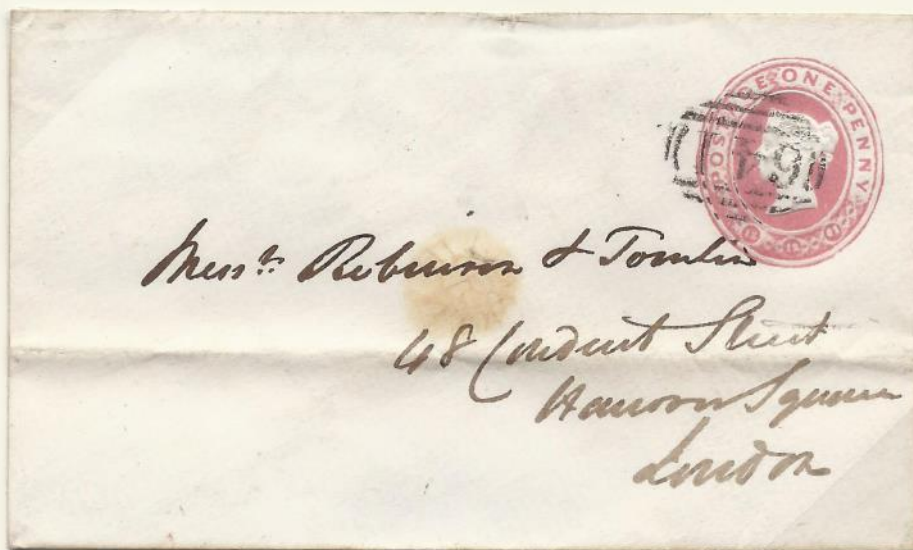 POSTAGE ONE PENNY
Messrs Robinson & Tomlin
48 Conduit Street
Hanover Square
London